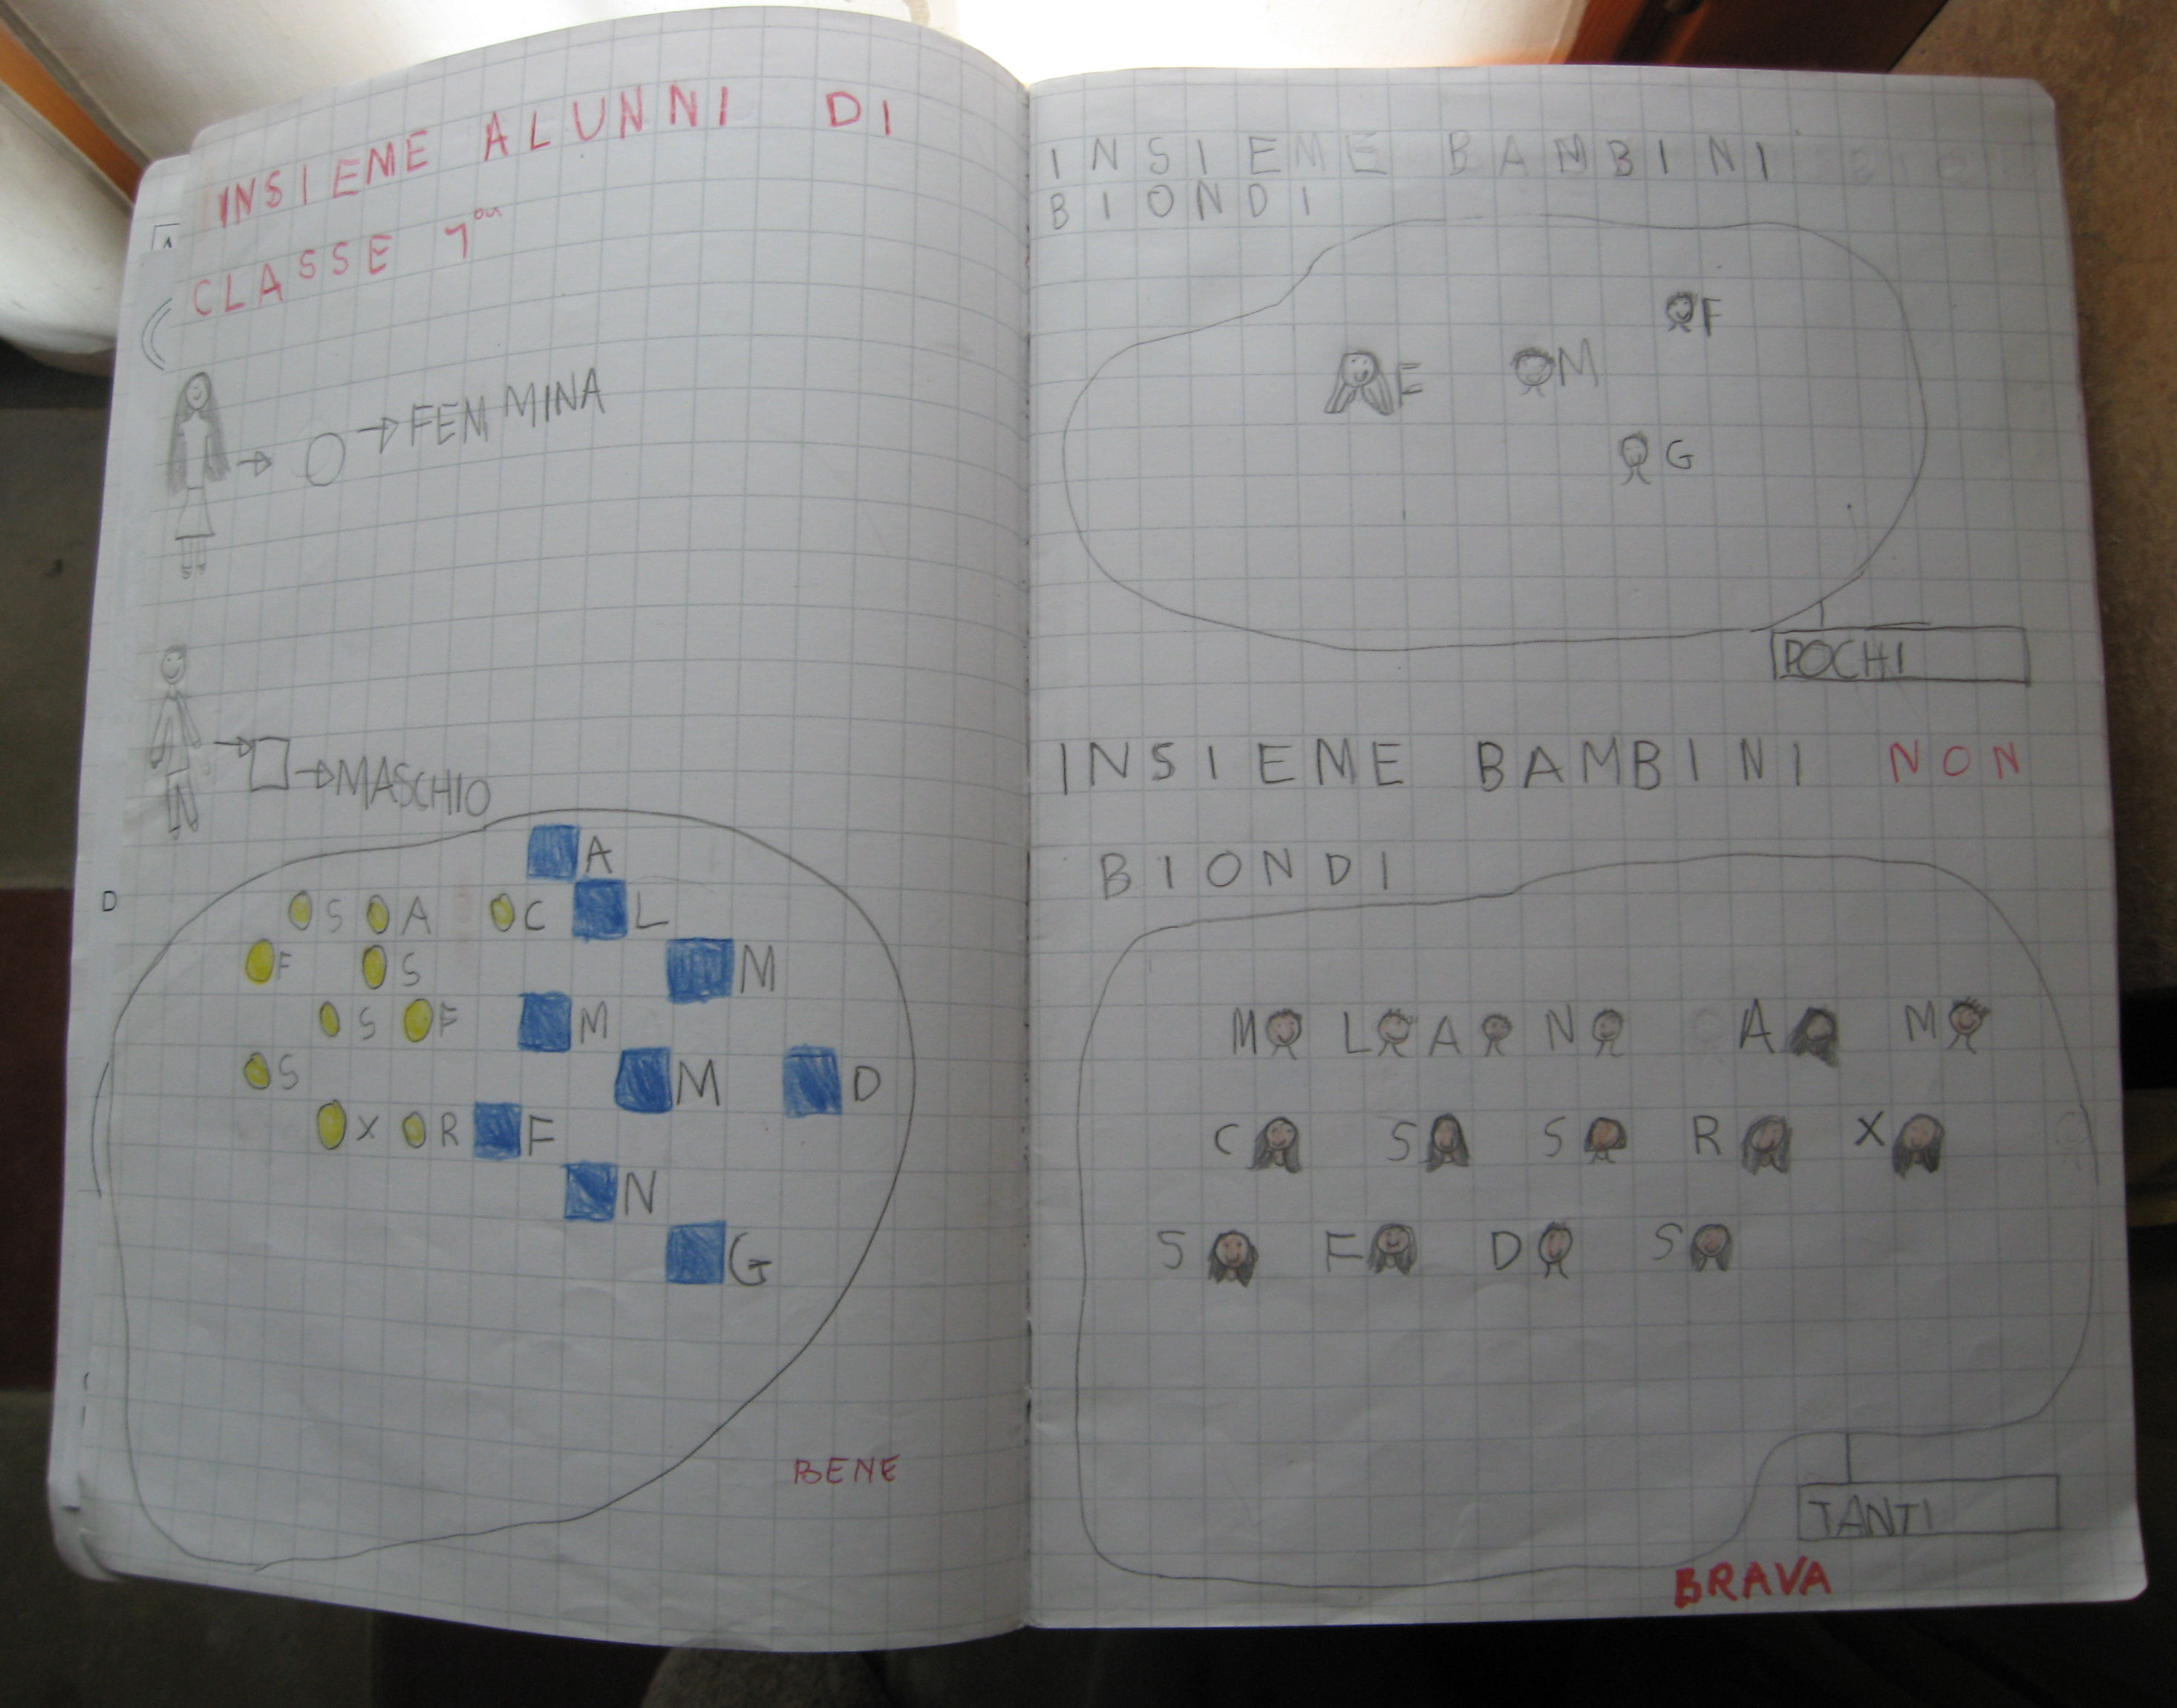 INSIEME ALUNNI DI
CLASSE 1
→ FEMMINA
→ MASCHIO
A
S A C L
F S M
S F M
S M D
X R F
N
G
BENE
INSIEME BAMBINI
BIONDI
F
F M
G
POCHI
INSIEME BAMBINI NON
BIONDI
M L A N A M
C S S R X
S F D S
TANTI
BRAVA